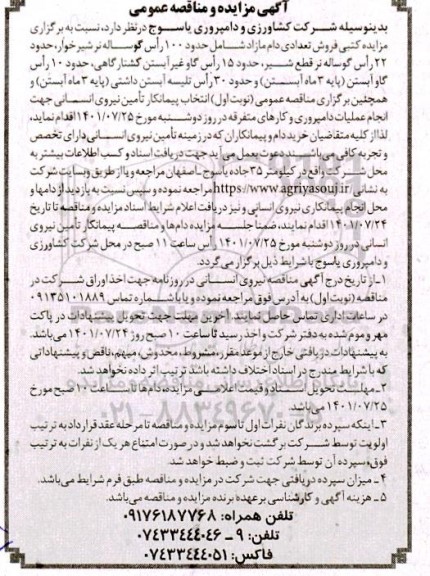 آگهی مزایده و مناقصه عمومی
بدینوسیله شرکت کشاورزی و دامپروری یاسوج در نظر دارد، نسبت به برگزاری
مزایده کتبی فروش تعدادی دام مازاد شامل حدود ۱۰۰ رأس گوساله نر شیرخوار، حدود
۲۲ رأس گوساله نر قطع شیر، حدود ۱۵ رأس گاو غیر آبستن کشتارگاهی، حدود ۱۰ رأس
گاو آبستن (پایه ۳ ماه آبستن) و حدود ۳۰ رأس تلیسه آبستن داشتی (پایه ۳ ماه آبستن) و
همچنین برگزاری مناقصه عمومی (نوبت اول) انتخاب پیمانکار تأمین نیروی انسانی جهت
انجام عملیات دامپروری و کارهای متفرقه در روز دوشنبه مورخ ۱۴۰۱/۰۷/۲۵ اقدام نماید،
لذا از کلیه متقاضیان خرید دام و پیمانکاران که در زمینه تأمین نیروی انسانی دارای تخصص
و تجربه کافی می باشند دعوت بعمل می آید جهت دریافت اسناد و کسب اطلاعات بیشتر به
محل شرکت واقع در کیلومتر ۳۵ جاده یاسوج ـ اصفهان مراجعه و یا از طریق وبسایت شرکت
به نشانی https://www.agriyasouj.ir/ مراجعه نموده و سپس نسبت به بازدید از دامها و
محل انجام پیمانکاری نیروی انسانی و نیز دریافت اعلام شرایط اسناد مزایده و مناقصه تا تاریخ
۱۴۰۱/۰۷/۲۴ اقدام نمایند، ضمناً جلسه مزایده دام ها و مناقصه پیمانکار تأمین نیروی
انسانی در روز دوشنبه مورخ ۱۴۰۱/۰۷/۲۵ رأس ساعت ۱۱ صبح در محل شرکت کشاورزی
و دامپروری یاسوج با شرایط ذیل برگزار می گردد.
۱ـ از تاریخ درج آگهی مناقصه نیروی انسانی در روزنامه جهت اخذ اوراق شرکت در
مناقصه (نوبت اول) به آدرس فوق مراجعه نموده و یا با شماره تماس ۰۹۱۳۵۱۰۱۸۸۹
در ساعات اداری تماس حاصل نمایند. آخرین مهلت جهت تحویل پیشنهادات در پاکت
مهر و موم شده به دفتر شرکت و اخذ رسید تا ساعت ۱۰ صبح روز ۱۴۰۱/۰۷/۲۴ می باشد.
به پیشنهادات دریافتی خارج از موعد مقرر، مشروط، مخدوش، مبهم، ناقص و پیشنهاداتی
که با شرایط مندرج در اسناد اختلاف داشته باشد ترتیب اثر داده نخواهد شد.
۲ـ مهلت تحویل اسناد و قیمت اعلامی مزایده دام ها تا ساعت ۱۰ صبح مورخ
۱۴۰۱/۰۷/۲۵ می باشد.
۳ـ اینکه سپرده برندگان نفرات اول تا سوم مزایده و مناقصه تا مرحله عقد قرارداد به ترتیب
اولویت توسط شرکت برگشت نخواهد شد و در صورت امتناع هر یک از نفرات به ترتیب
فوق، سپرده آن توسط شرکت ثبت و ضبط خواهد شد.
۴ـ میزان سپرده دریافتی جهت شرکت در مزایده و مناقصه طبق فرم شرایط می باشد.
۵ـ هزینه آگهی و کارشناسی بر عهده برنده مزایده و مناقصه می باشد.
تلفن همراه: ۰۹۱۷۶۱۸۷۷۶۸
تلفن: ۹ ـ ۰۷۴۳۳۴۴۴۰۴۶
فاکس: ۰۷۴۳۳۴۴۴۰۵۱